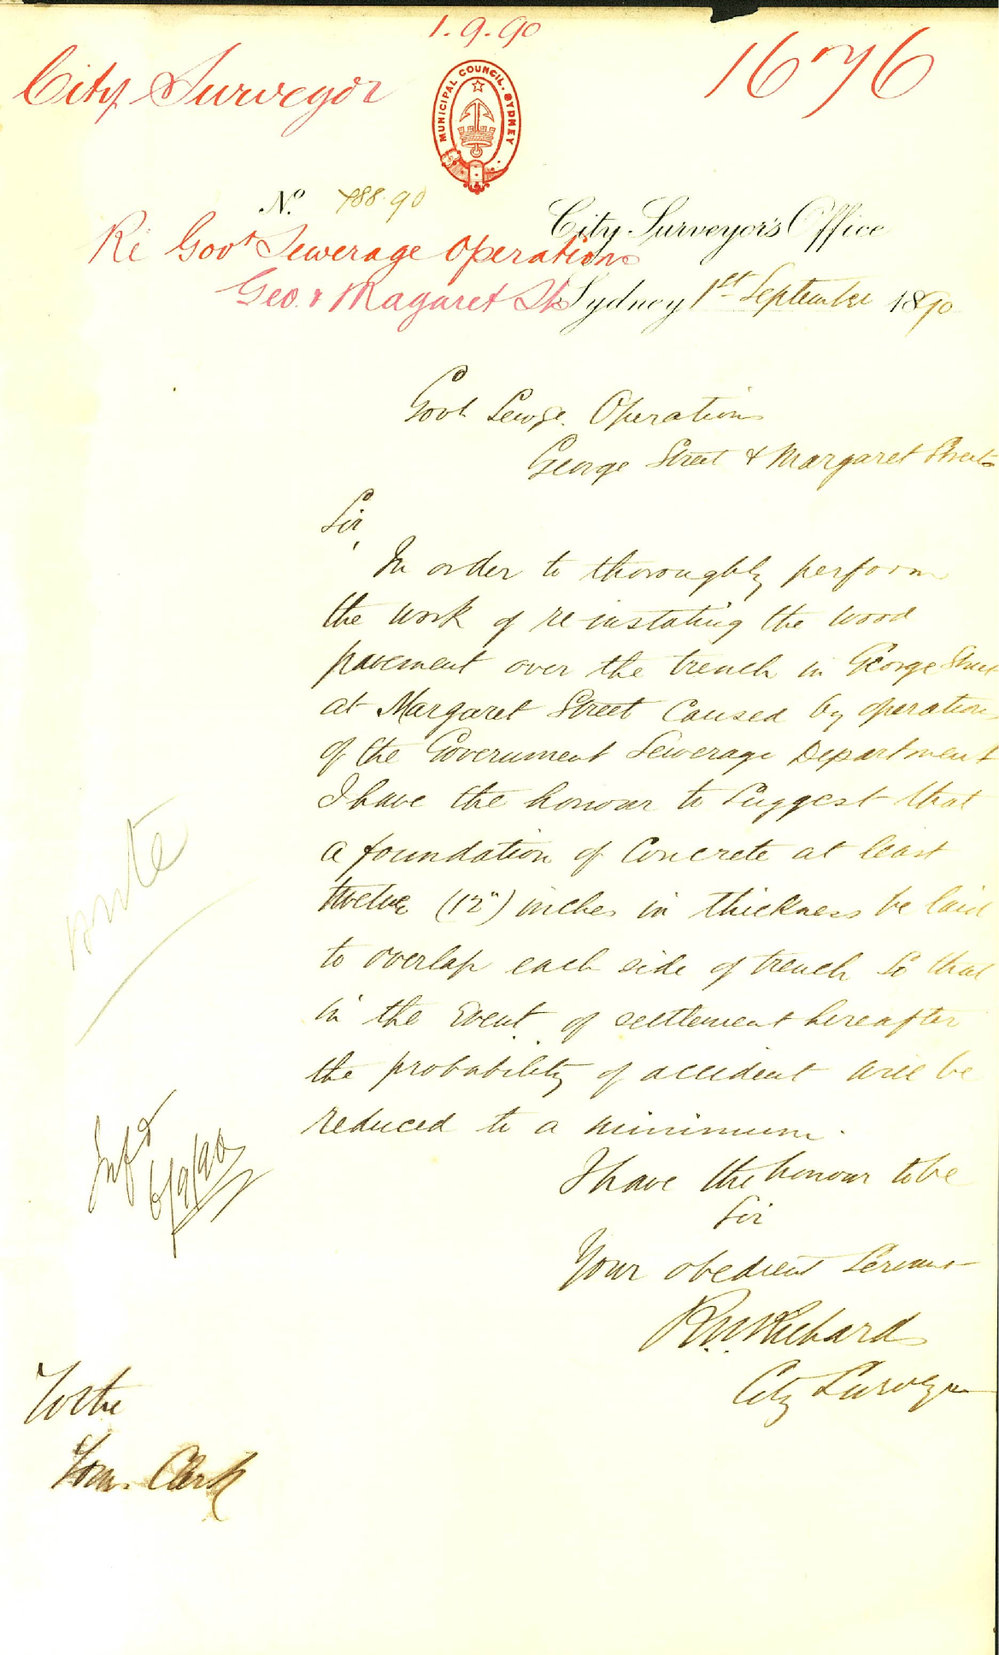 1.9.90
City Surveyor
1676
MUNICIPAL COUNCIL. SYDNEY
No. 788.90
City Surveyor's Office
Re Govt Sewerage Operations
Geo. & Magaret St
Sydney 1st September 1890
Govt Sewge. Operations
George Street & Margaret Streets
Sir,
In order to thoroughly perform
the work of re-instating the wood
pavement over the trench in George Street
at Margaret Street caused by operations
of the Government Sewerage Department
I have the honour to suggest that
a foundation of concrete at least
twelve (12") inches in thickness be laid
to overlap each side of trench so that
in the event of settlement hereafter
the probability of accident will be
reduced to a minimum.
I have the honour to be
Sir
Your obedient Servant
City Surveyor
write
Infd
6/9/90
To the
Town Clerk